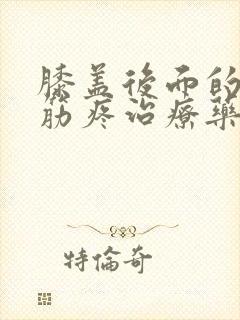 膝盖後而的
筋疼治療藥
特倫奇